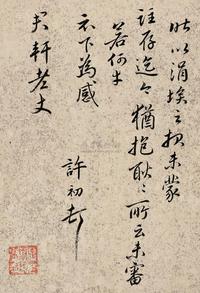 此以涓埃之報未蒙
註存迄今猶抱耿耿所云未審
若何也
示下為感
軒老丈
許初